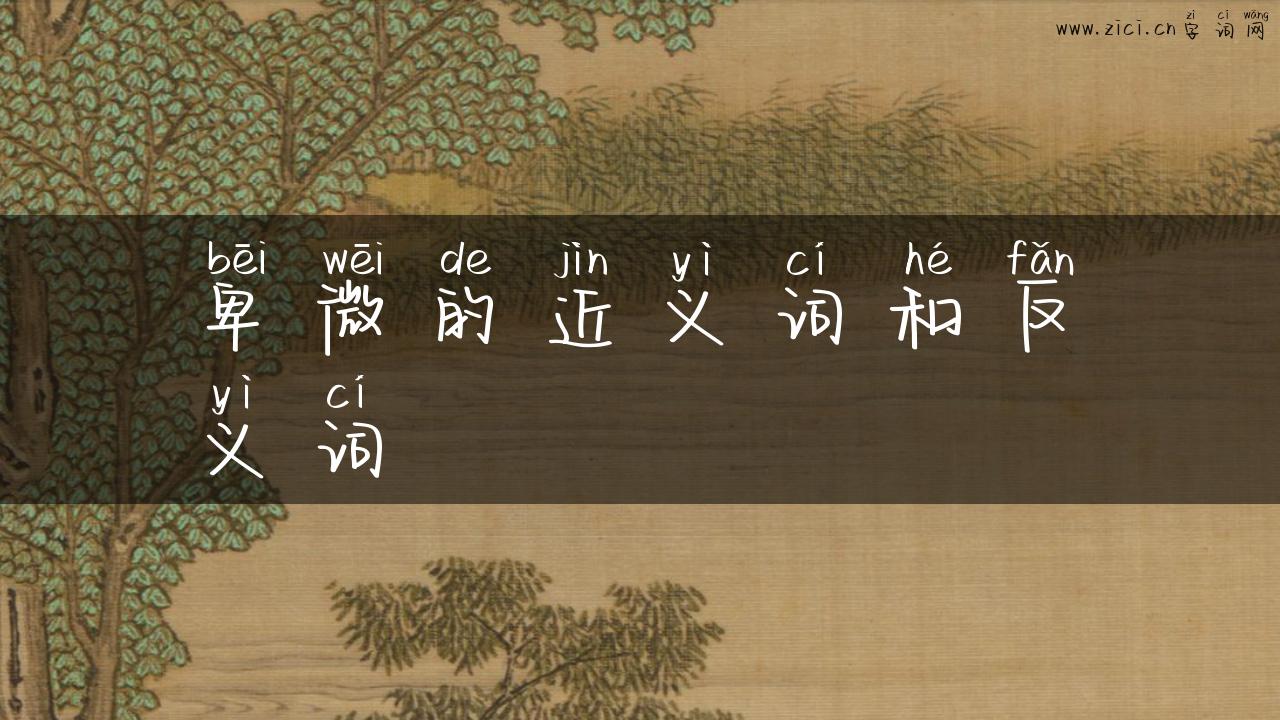 zì cí wǎng
www.zici.cn 字词网
bēi wēi de jìn yì cí hé fǎn
卑微的近义词和反
yì cí
义词